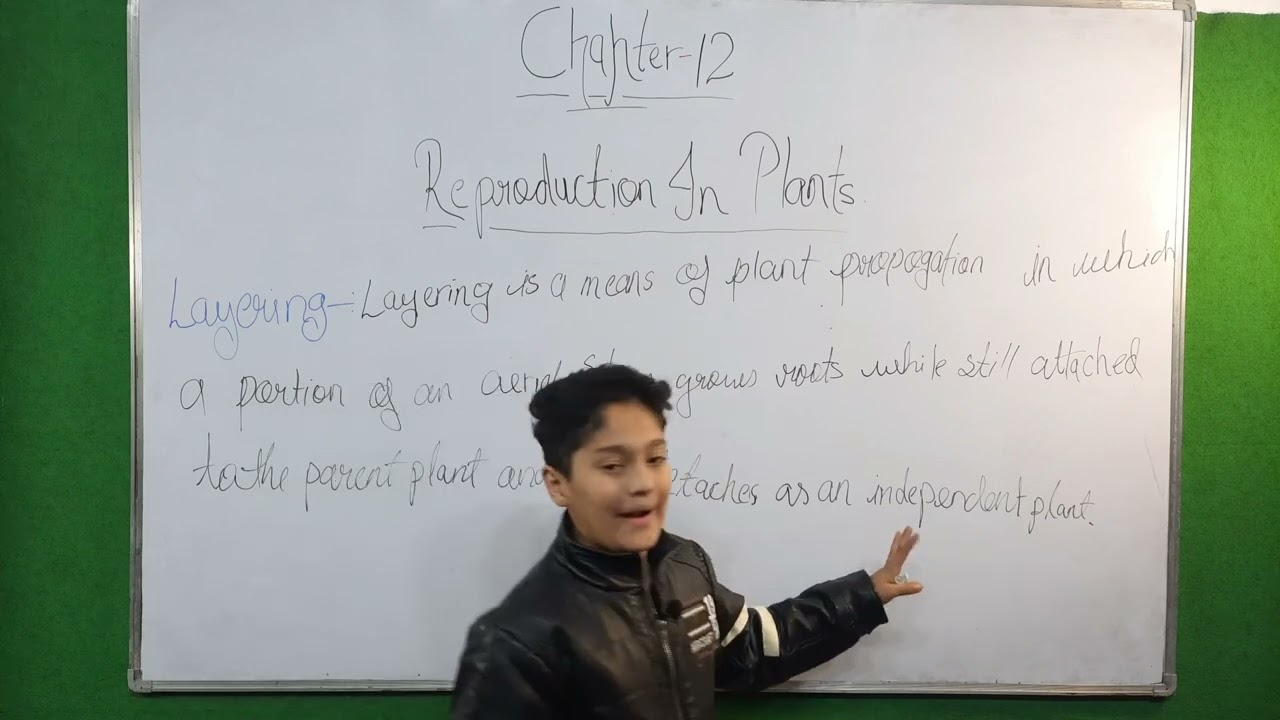 Chapter-12
Reproduction In Plants
Layering-: Layering is a means of plant propogation in which
a portion of an grows roots while still attached
to the parent plant as an independent plant.